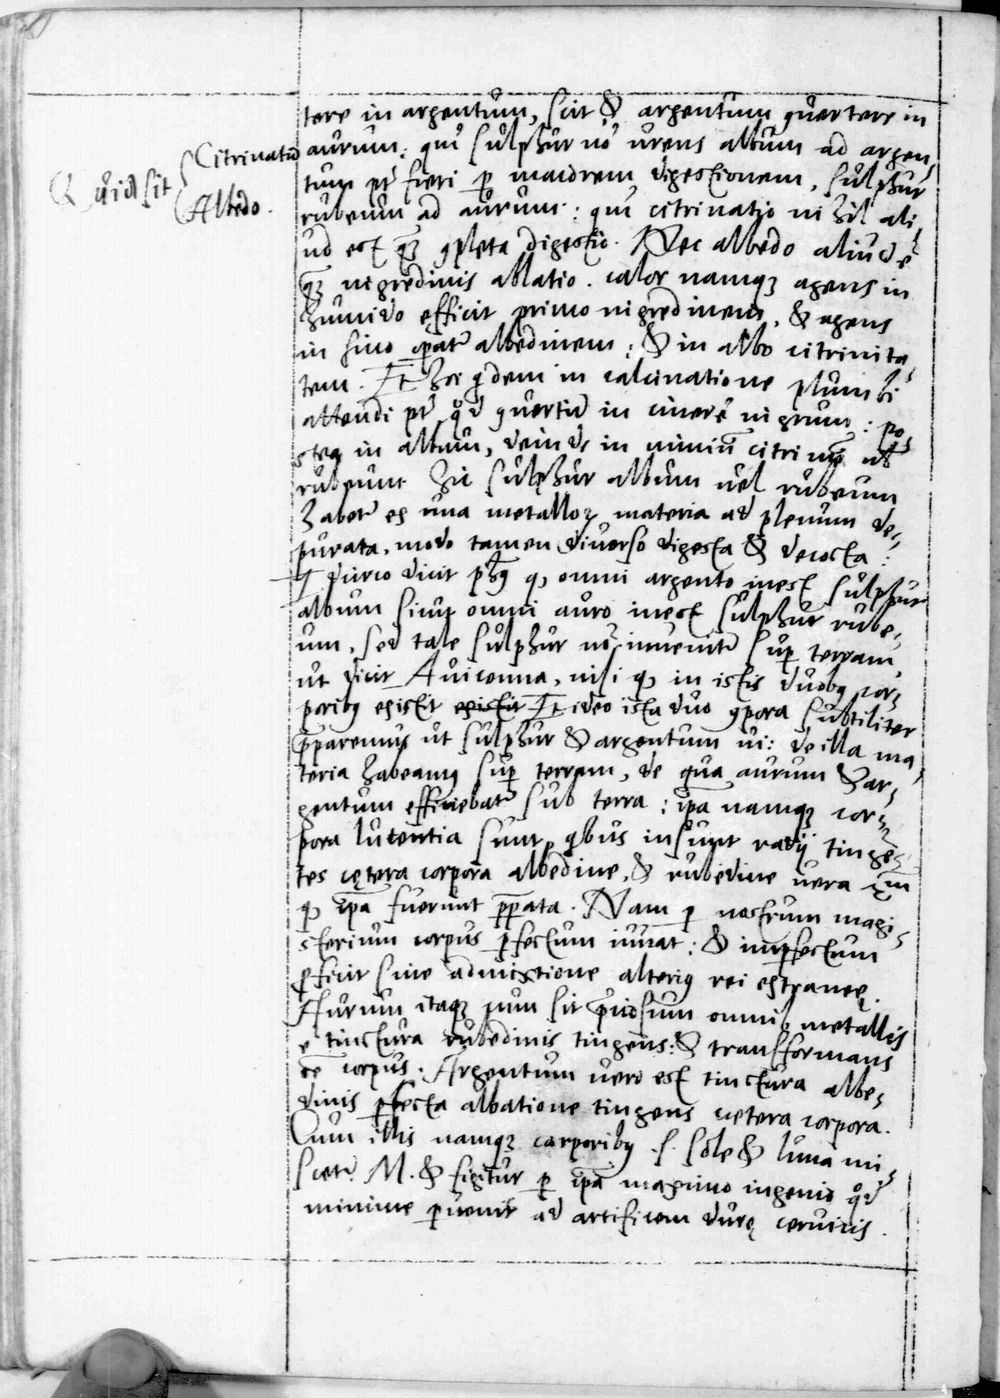 Quid sit
Citrinatio
Albedo.
tere in argentum, sicut & argentum ꝯuertere in
aurum: qm̄ sulphur nō urens album ad argen-
tum pt̄ fieri ꝑ maiorem digestionem, sulphur
rubeum ad aurum: qm̄ citrinatio nihil ali-
ud est qꝫ ꝯpleta digestio. Nec albedo aliud ē
qꝫ nigredinis ablatio. calor namqꝫ agens in
humido efficit primo nigredinem, & agens
in sicco opatr̄ albedinem: & in albo citrinita-
tem. Et hoc qdem in calcinatione plumbi
attendi pt̄ qd̄ ꝯuertitr̄ in cinerē nigrum: po-
stea in album, deinde in miniū citrinū
rubeum Sic sulphur album uel rubeum
habetr̄ ex una metalloꝝ materia ad plenum de-
purata, modo tamen diuerso digesta & decocta:
Idcirco dicit phūs ꝙ omni argento inest sulphur
album sicut omni auro inest sulphur rube-
um, sed tale sulphur nō inuenitr̄ suꝑ terram
ut dicit Auicenna, nisi ꝙ in istis duobꝰ cor-
poribꝰ existit existit Et ideo ista duo ꝯpora subtiliter
p̄paremus ut sulphur & argentum ui: de illa ma-
teria habeamꝰ suꝑ terram, de qua aurum & ar-
gentum efficiebatr̄ sub terra: ip̄a namqꝫ cor-
pora lucentia sunt, qbus insunt radij tingē-
tes cętera corpora albedine, & rubedine uera
ꝙ ip̄a fuerunt p̄pata. Nam ꝑ nostrum magi-
sterium corpus ꝑfectum iuuat: & imꝑfectum
ꝑficit sine admixtione alteriꝰ rei extraneę.
Aurum itaqꝫ cum sit p̄ciosum omnibꝰ metallis
e tinctura rubedinis tingens: & transformans
oē corpus. Argentum uero est tinctura albe-
dinis ꝑfecta albatione tingens cætera corpora.
Cum illis namqꝫ corporibꝰ .s. sole & luna mi-
scetr̄ M. & figitur ꝑ ip̄a maximo ingenio qd̄
minime ꝑuenit ad artificem durę ceruicis.